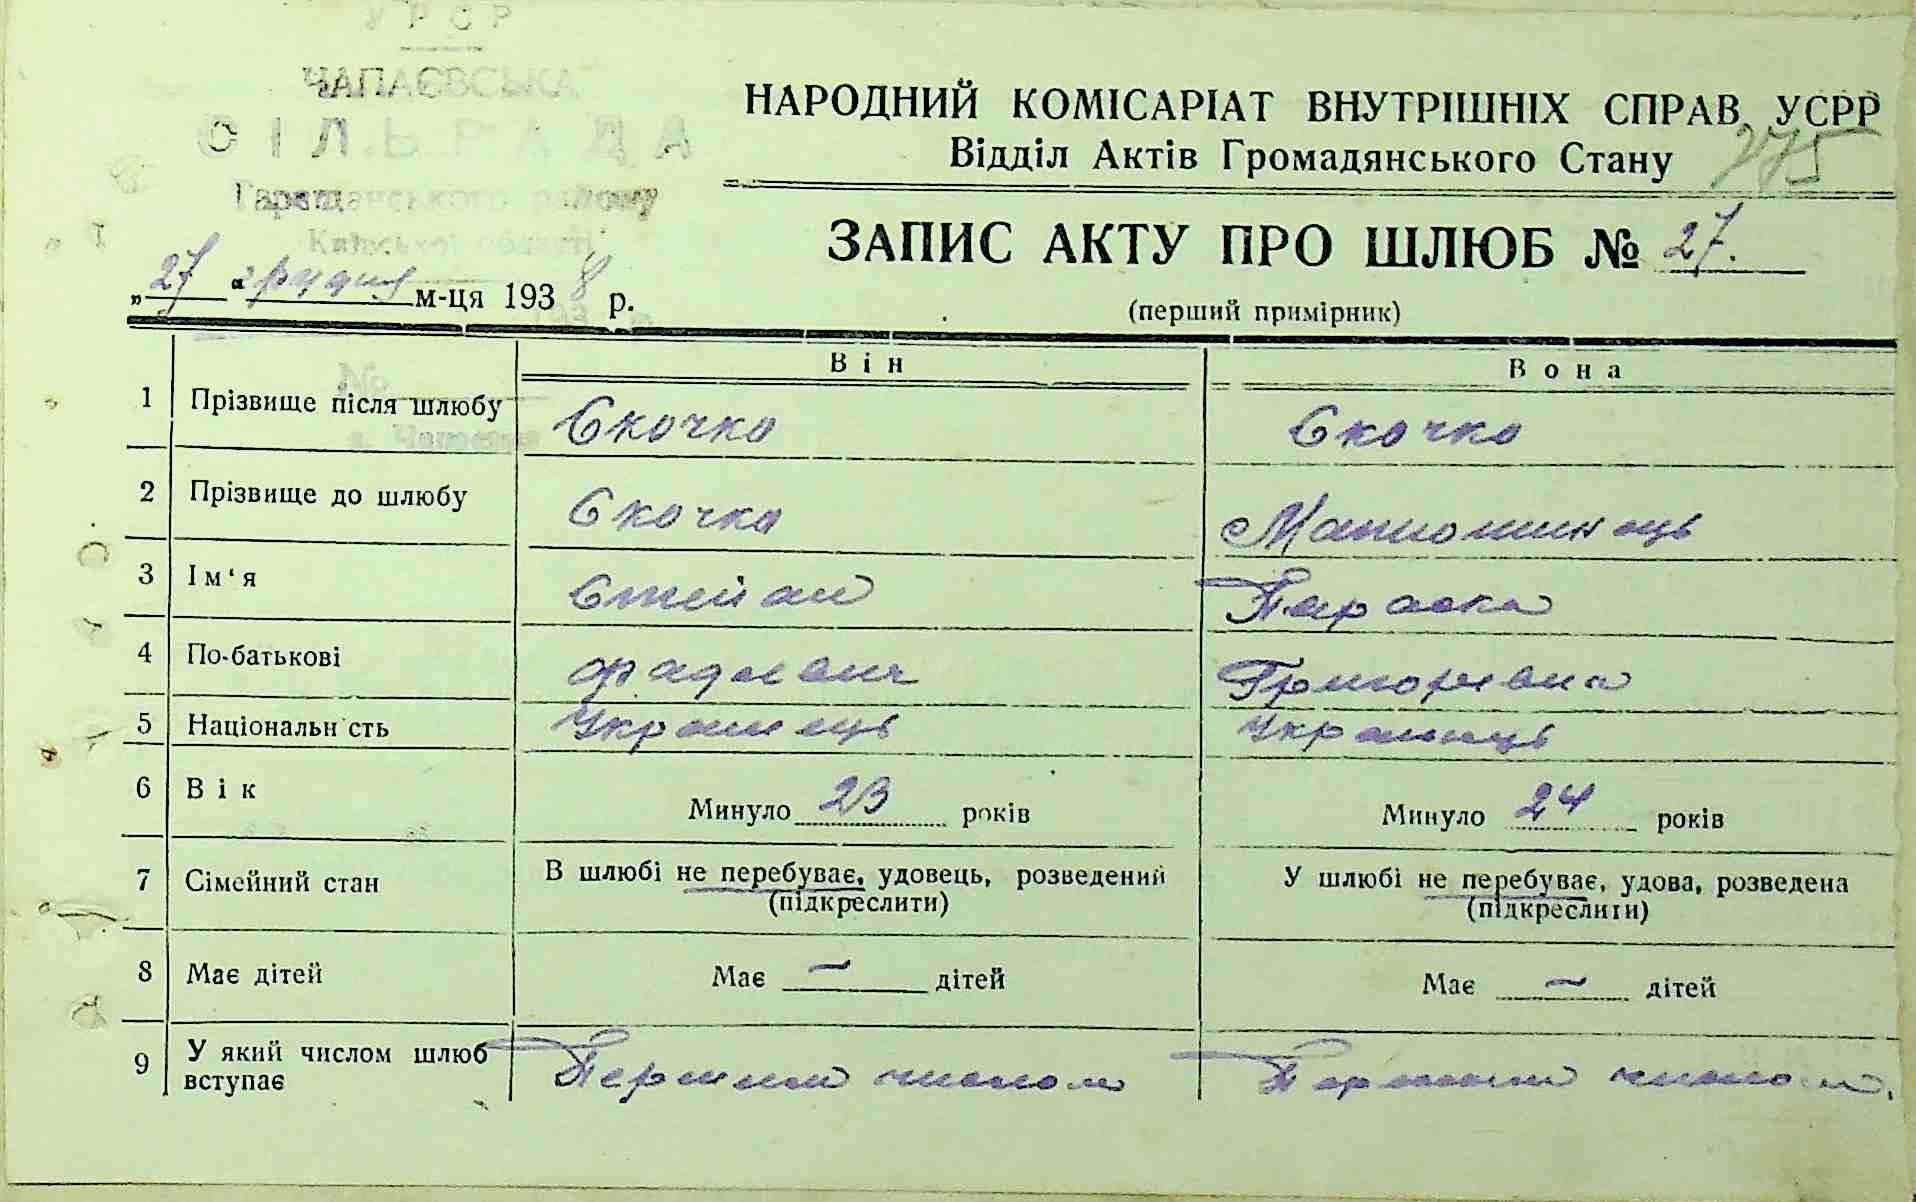 УРСР
ЧАПАЄВСЬКА
СІЛЬРАДА
Таращанського району
Київської області
НАРОДНИЙ КОМІСАРІАТ ВНУТРІШНІХ СПРАВ УСРР
Відділ Актів Громадянського Стану
275
ЗАПИС АКТУ ПРО ШЛЮБ № 27.
„27 “ грудня м-ця 1938 р.
(перший примірник)
193 р.
Він Вона
№
1 Прізвище після шлюбу Скочко Скочко
2 Прізвище до шлюбу Скочко Матюшинець
3 Ім‘я Степан Параска
4 По-батькові Фадєєвич Григорівна
5 Національн сть Українець Українець
6 Вік Минуло 23 років Минуло 24 років
7 Сімейний стан В шлюбі не перебуває, удовець, розведений У шлюбі не перебуває, удова, розведена
(підкреслити) (підкреслити)
8 Має дітей Має — дітей Має — дітей
9 У який числом шлюб вступає Першим числом Першим числом.